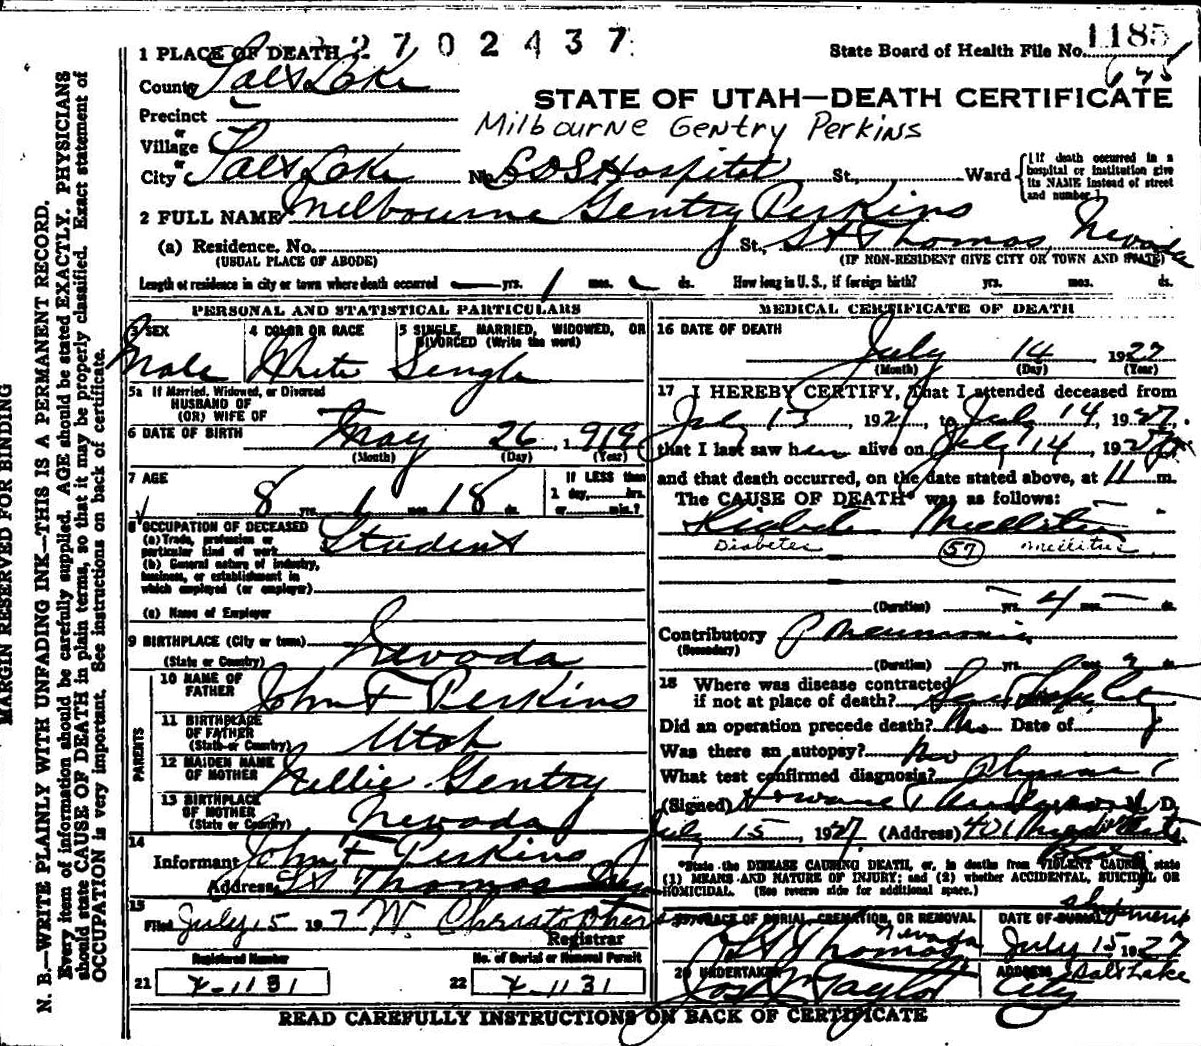 2702437
1 PLACE OF DEATH
State Board of Health File No. 1185
County Salt Lake
STATE OF UTAH—DEATH CERTIFICATE
Precinct
Milbourne Gentry Perkins
or
Village
or
City Salt Lake No. LDS Hospital St., Ward
{ [If death occurred in a
hospital or institution give
its NAME instead of street
and number.]
2 FULL NAME Milbourne Gentry Perkins
(a) Residence, No. St. St Thomas Nevada
(USUAL PLACE OF ABODE) (IF NON-RESIDENT GIVE CITY OR TOWN AND STATE)
Length of residence in city or town where death occurred — yrs. 1 mos. ds. How long in U. S., if foreign birth? yrs. mos. ds.
PERSONAL AND STATISTICAL PARTICULARS
3 SEX 4 COLOR OR RACE 5 SINGLE, MARRIED, WIDOWED, OR
DIVORCED (Write the word)
Male White Single
5a If Married, Widowed, or Divorced
HUSBAND OF
(OR) WIFE OF
6 DATE OF BIRTH May 26 1919
(Month) (Day) (Year)
7 AGE 8 yrs. 1 mos. 18 ds.
If LESS than
1 day, hrs.
or min.?
8 OCCUPATION OF DECEASED
(a) Trade, profession or
particular kind of work Student
(b) General nature of industry,
business, or establishment in
which employed (or employer)
(c) Name of Employer
9 BIRTHPLACE (City or town)
(State or Country) Nevada
PARENTS
10 NAME OF
FATHER John F Perkins
11 BIRTHPLACE
OF FATHER
(State or Country) Utah
12 MAIDEN NAME
OF MOTHER Nellie Gentry
13 BIRTHPLACE
OF MOTHER
(State or Country) Nevada
14
Informant John F Perkins
Address St Thomas Nev
15
Filed July 15 1927 W. Christophers
Registrar
Registered Number No. of Burial or Removal Permit
21 7-1131 22 7-1131
MEDICAL CERTIFICATE OF DEATH
16 DATE OF DEATH
July 14, 1927
(Month) (Day) (Year)
17 I HEREBY CERTIFY, That I attended deceased from
July 13, 1927, to July 14, 1927,
that I last saw him alive on July 14, 1927,
and that death occurred, on the date stated above, at 11 m.
The CAUSE OF DEATH* was as follows:
Diabetes Mellitus
Diabetes (57) mellitus
(Duration) — yrs. 4 mos. — ds.
Contributory Pneumonia
(Secondary)
(Duration) yrs. mos. 2 ds.
18 Where was disease contracted
if not at place of death?
Did an operation precede death? No Date of
Was there an autopsy? No
What test confirmed diagnosis? Physical
(Signed) Howard Anderson M. D.
July 15, 1927 (Address) 401 Med Arts
Bldg
*State the DISEASE CAUSING DEATH, or, in deaths from VIOLENT CAUSES, state
(1) MEANS AND NATURE OF INJURY; and (2) whether ACCIDENTAL, SUICIDAL OR
HOMICIDAL. (See reverse side for additional space.)
19 PLACE OF BURIAL, CREMATION, OR REMOVAL DATE OF BURIAL shipment
St Thomas Nevada July 15 1927
20 UNDERTAKER ADDRESS Salt Lake
Jos Wm Taylor City
READ CAREFULLY INSTRUCTIONS ON BACK OF CERTIFICATE
MARGIN RESERVED FOR BINDING
N. B.—WRITE PLAINLY WITH UNFADING INK—THIS IS A PERMANENT RECORD.
Every item of information should be carefully supplied. AGE should be stated EXACTLY. PHYSICIANS
should state CAUSE OF DEATH in plain terms, so that it may be properly classified. Exact statement of
OCCUPATION is very important. See instructions on back of certificate.